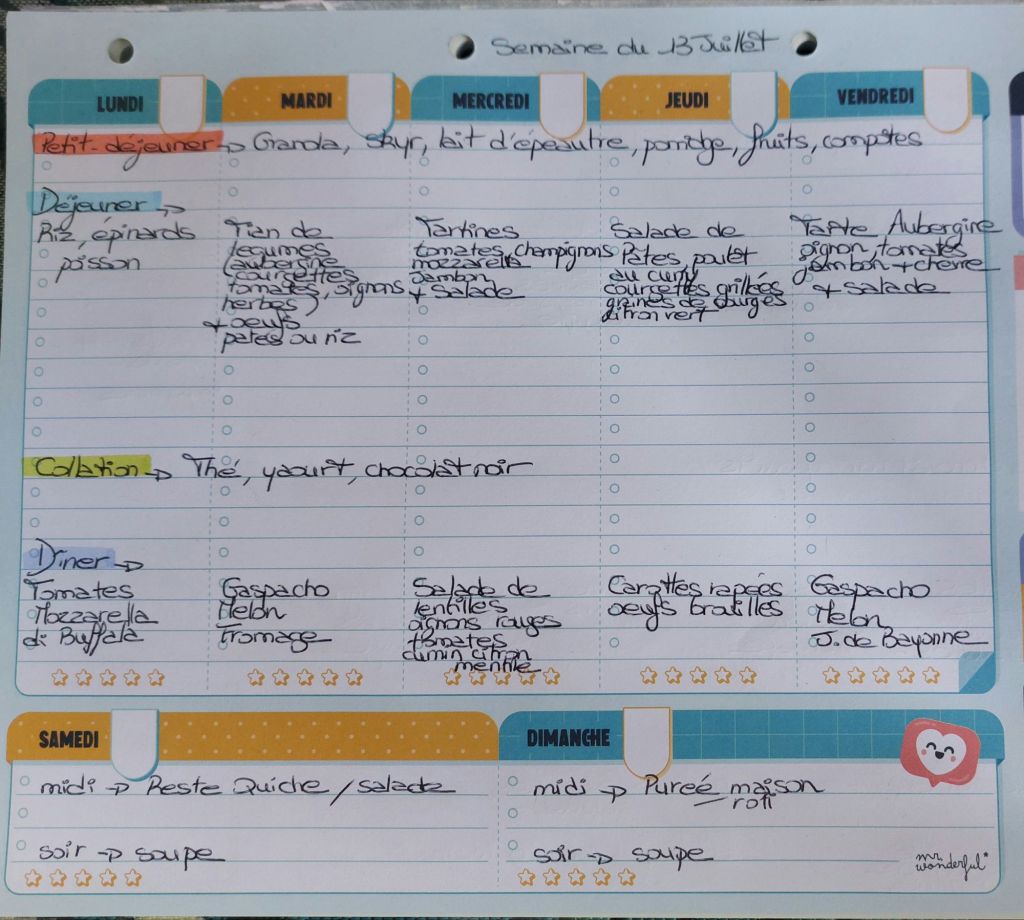 Semaine du 13 Juillet
LUNDI
MARDI
MERCREDI
JEUDI
VENDREDI
Petit-déjeuner → Granola, skyr, lait d'épeautre, porridge, fruits, compotes
Déjeuner →
Riz, épinards
poisson
Tian de
legumes
(aubergine
courgettes
tomates, oignons
herbes)
+ oeufs
pates ou riz
Tartines
tomates, champignons
mozzarella
Jambon
+ Salade
Salade de
Pates, poulet
au curry
courgettes grillées
graines de courges
citron vert
Tarte Aubergine
oignon, tomates
jambon + chèvre
+ salade
Collation → Thé, yaourt, chocolat noir
Dîner →
Tomates
Mozzarella
di Buffala
Gaspacho
Melon
Fromage
Salade de
lentilles
oignons rouges
tomates
cumin citron
menthe
Carottes rapées
oeufs brouillés
Gaspacho
Melon
J. de Bayonne
SAMEDI
midi → Reste Quiche / salade
soir → soupe
DIMANCHE
midi → Pureé maison
roti
soir → soupe
mr. wonderful*